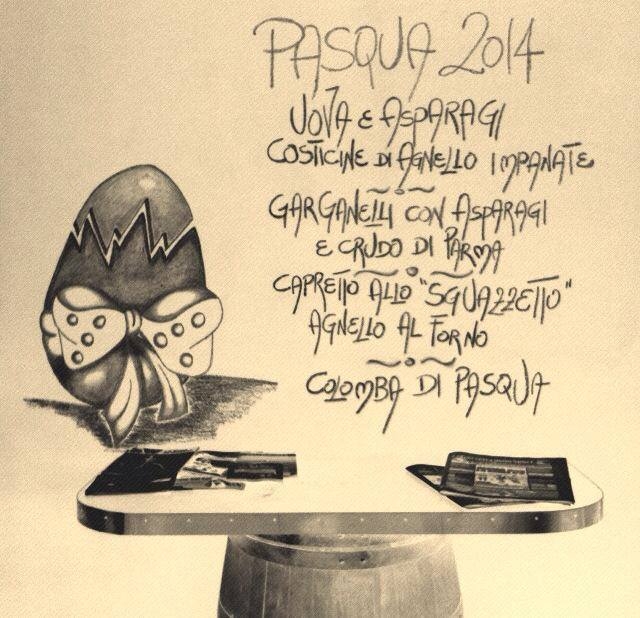 PASQUA 2014
UOVA E ASPARAGI
COSTICINE DI AGNELLO IMPANATE
GARGANELLI CON ASPARAGI
E CRUDO DI PARMA
CAPRETTO ALLO "SGUAZZETTO"
AGNELLO AL FORNO
COLOMBA DI PASQUA